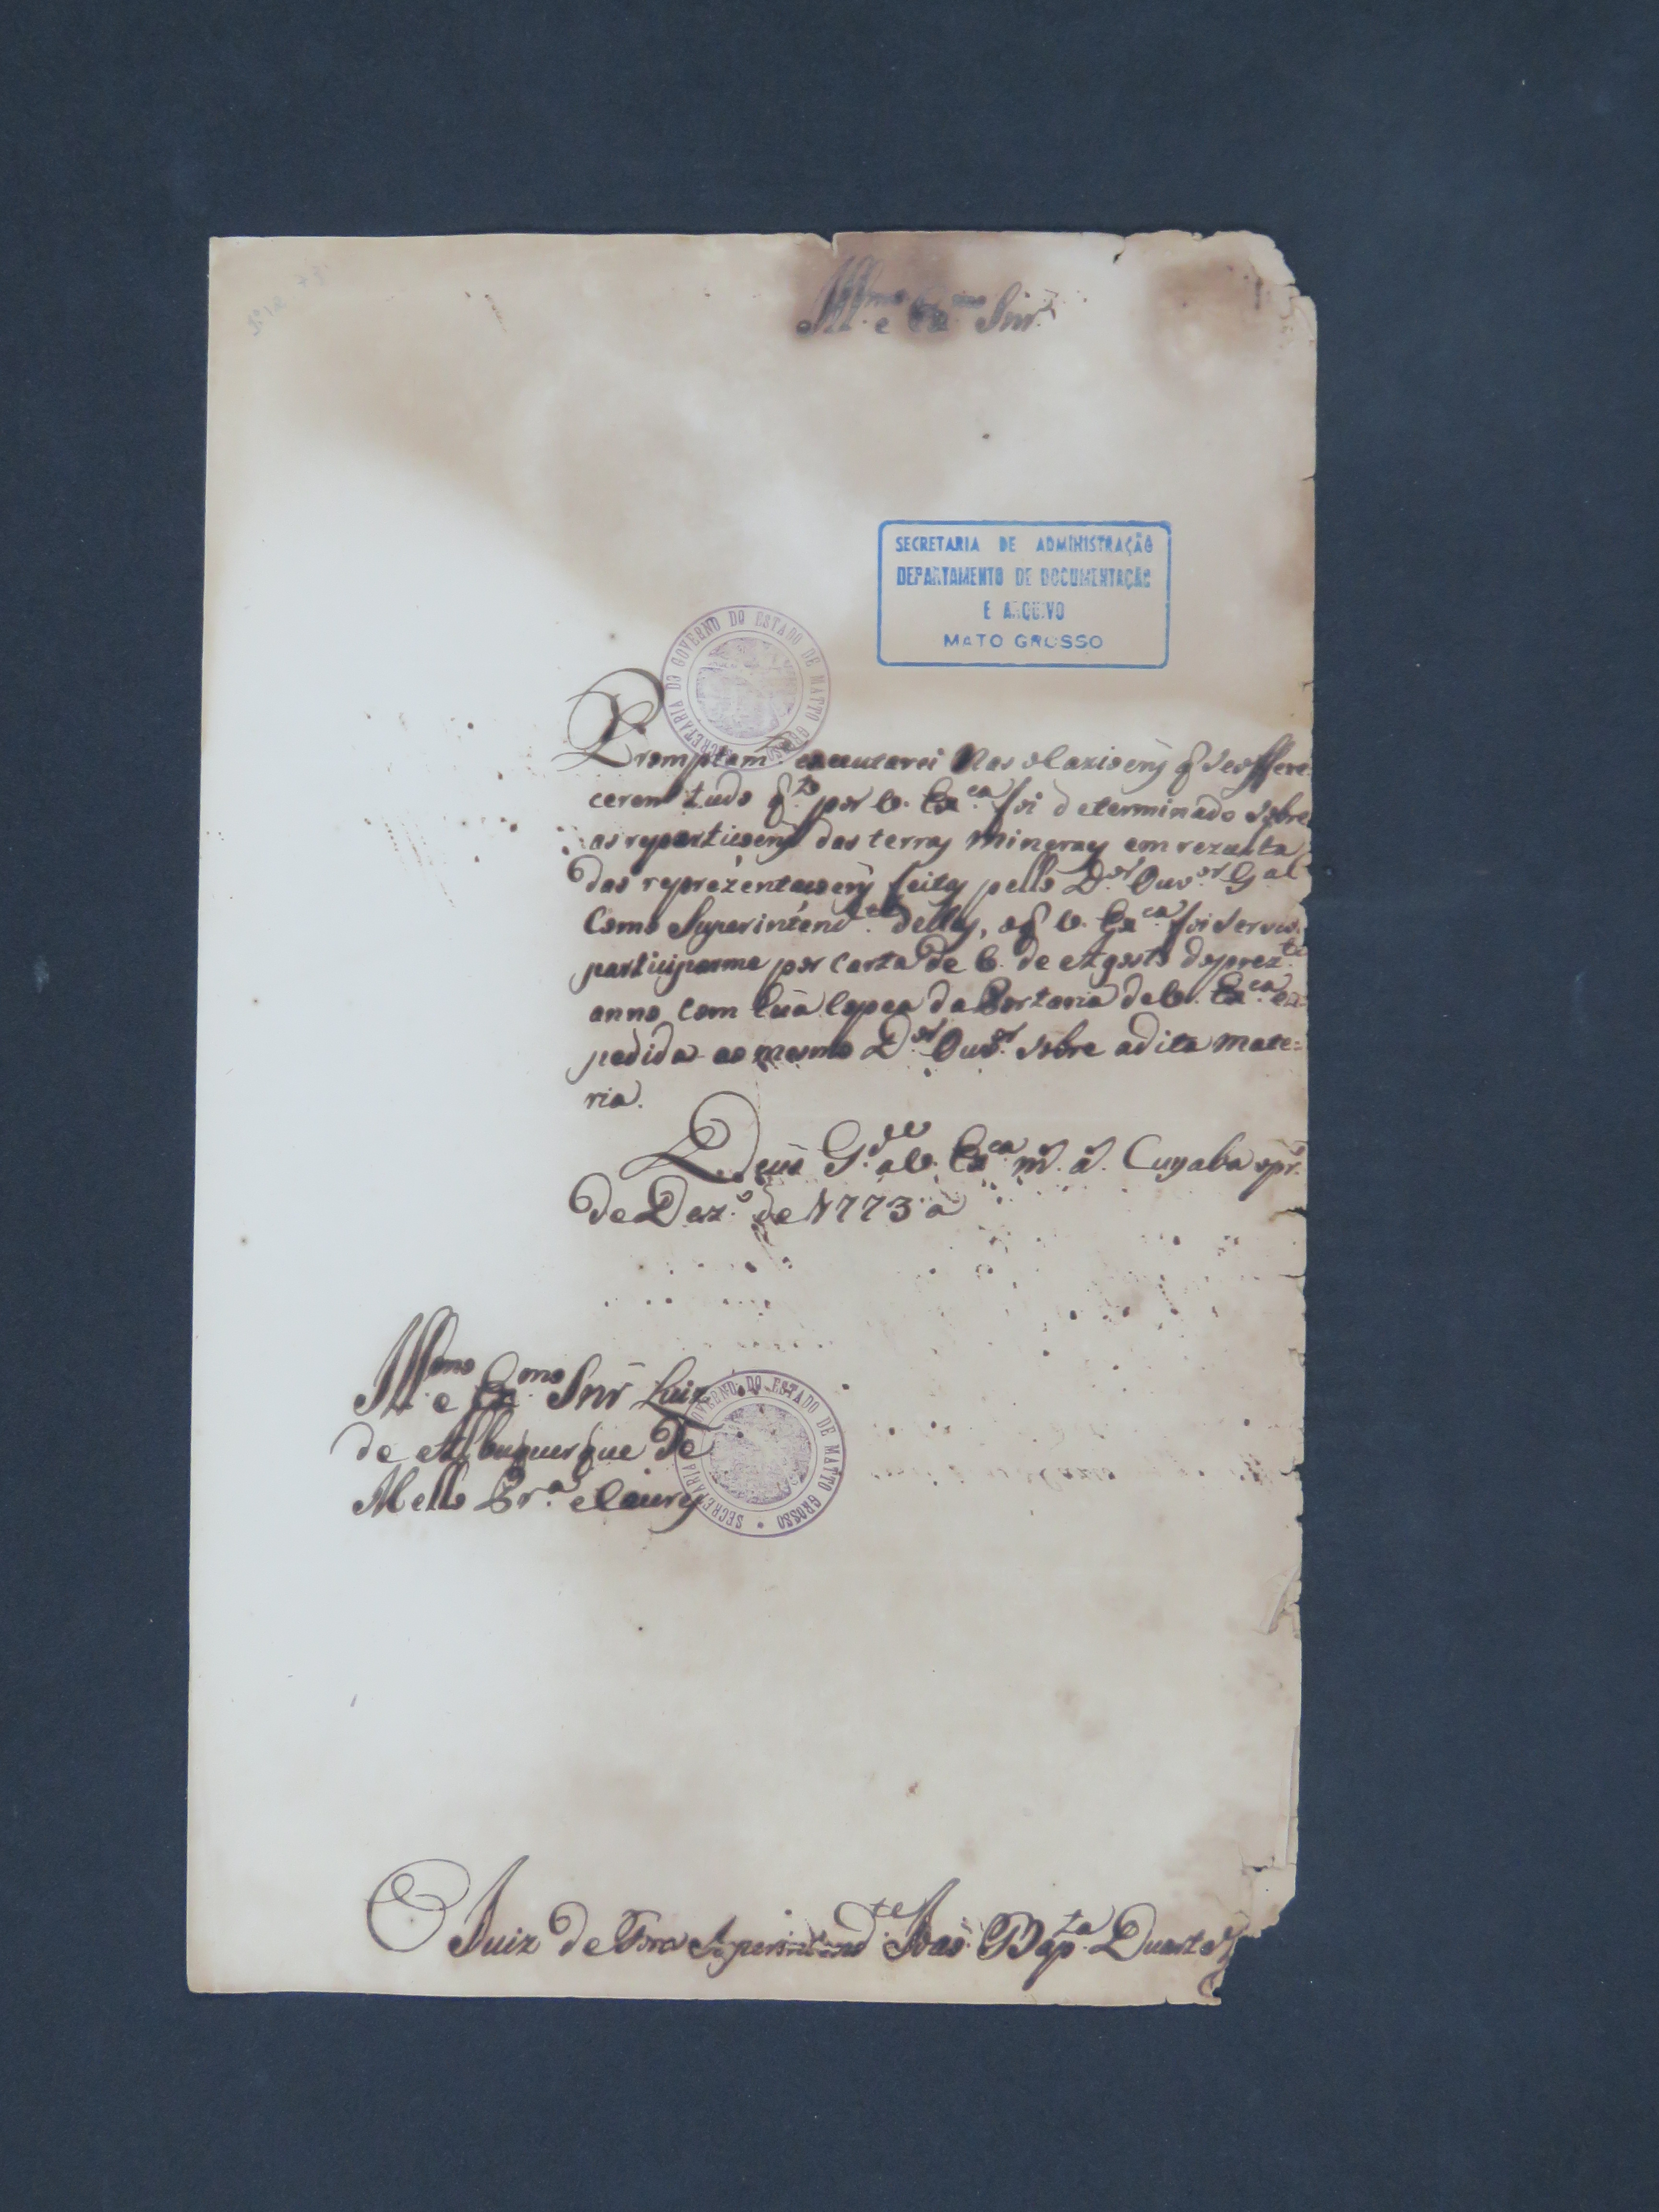 Ill.mo e Ex.mo Snr.
SECRETARIA DE ADMINISTRAÇÃO
DEPARTAMENTO DE DOCUMENTAÇÃO
E ARQUIVO
MATO GROSSO
SECRETARIA DO GOVERNO DO ESTADO DE MATTO GROSSO
Promptam.e executarei nas occazioens q̃ se offere
cerem tudo q.to por V. Ex.ca foi determinado sobre
as repartiçoens das terras mineraes em rezulta
das reprezentaçoens feitas pello D.or Ouv.or G.al
Como Superintend.te dellas, o q̃ V. Ex.ca foi servi
participarme por carta de 6 de Agosto do prez.te
anno com hũa copea da Portaria de V. Ex.ca ex=
pedida ao mesmo D.or Ouv.or sobre a dita mate=
ria.
Deus G.de a V. Ex.ca m.s a.s Cuyaba o pr.
de Dez.o de 1773 a
Ill.mo e Ex.mo Snr Luiz
de Albuquerque de
Mello Pr.a e Caceres
SECRETARIA DO GOVERNO DO ESTADO DE MATTO GROSSO
O Juiz de Fora Superintend.te João Bap.ta Duarte